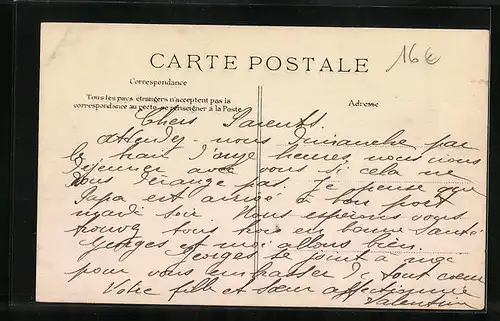 CARTE POSTALE
16€
Correspondance
Tous les pays étrangers n'acceptent pas la
correspondance au recto se renseigner à la Poste
Adresse
Chers Parents.
Attendez-nous Dimanche par
le train d'onze heures, nous irons
déjeuner avec vous si cela ne
vous dérange pas. Je pense que
Papa est arrivé à bon port
mardi soir. Nous espérons vous
trouver tous trois en bonne santé
Georges et moi allons bien.
Georges se joint à moi
pour vous embrasser de tout cœur
Votre fille et sœur affectionnée
Valentine